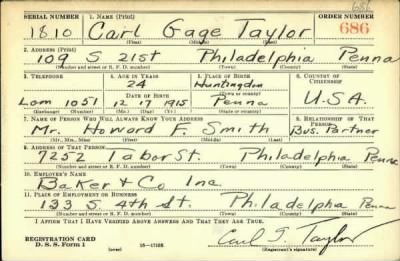 686
SERIAL NUMBER 1. NAME (Print) ORDER NUMBER
1810 Carl Gage Taylor 686
(First) (Middle) (Last)
2. ADDRESS (Print)
109 S 21st Philadelphia Penna
(Number and street or R. F. D. number) (Town) (County) (State)
3. TELEPHONE 4. AGE IN YEARS 5. PLACE OF BIRTH 6. COUNTRY OF CITIZENSHIP
24 Huntingdon
DATE OF BIRTH
Lom 1051 12 17 1915 Penna U.S.A.
(Exchange) (No.) (Mo.) (Day) (Yr.) (State or country)
7. NAME OF PERSON WHO WILL ALWAYS KNOW YOUR ADDRESS 8. RELATIONSHIP OF THAT PERSON
Mr. Howard F. Smith Bus. Partner
(Mr., Mrs., Miss) (First) (Middle) (Last)
9. ADDRESS OF THAT PERSON
7252 Tabor St. Philadelphia Penna
(Number and street or R. F. D. number) (Town) (County) (State)
10. EMPLOYER'S NAME
Baker & Co Inc
11. PLACE OF EMPLOYMENT OR BUSINESS
133 S. 4th St. Philadelphia Penna
(Number and street or R. F. D. number) (Town) (County) (State)
I AFFIRM THAT I HAVE VERIFIED ABOVE ANSWERS AND THAT THEY ARE TRUE.
REGISTRATION CARD
D. S. S. FORM 1 (over) 16—17105 Carl G. Taylor
(Registrant's signature)